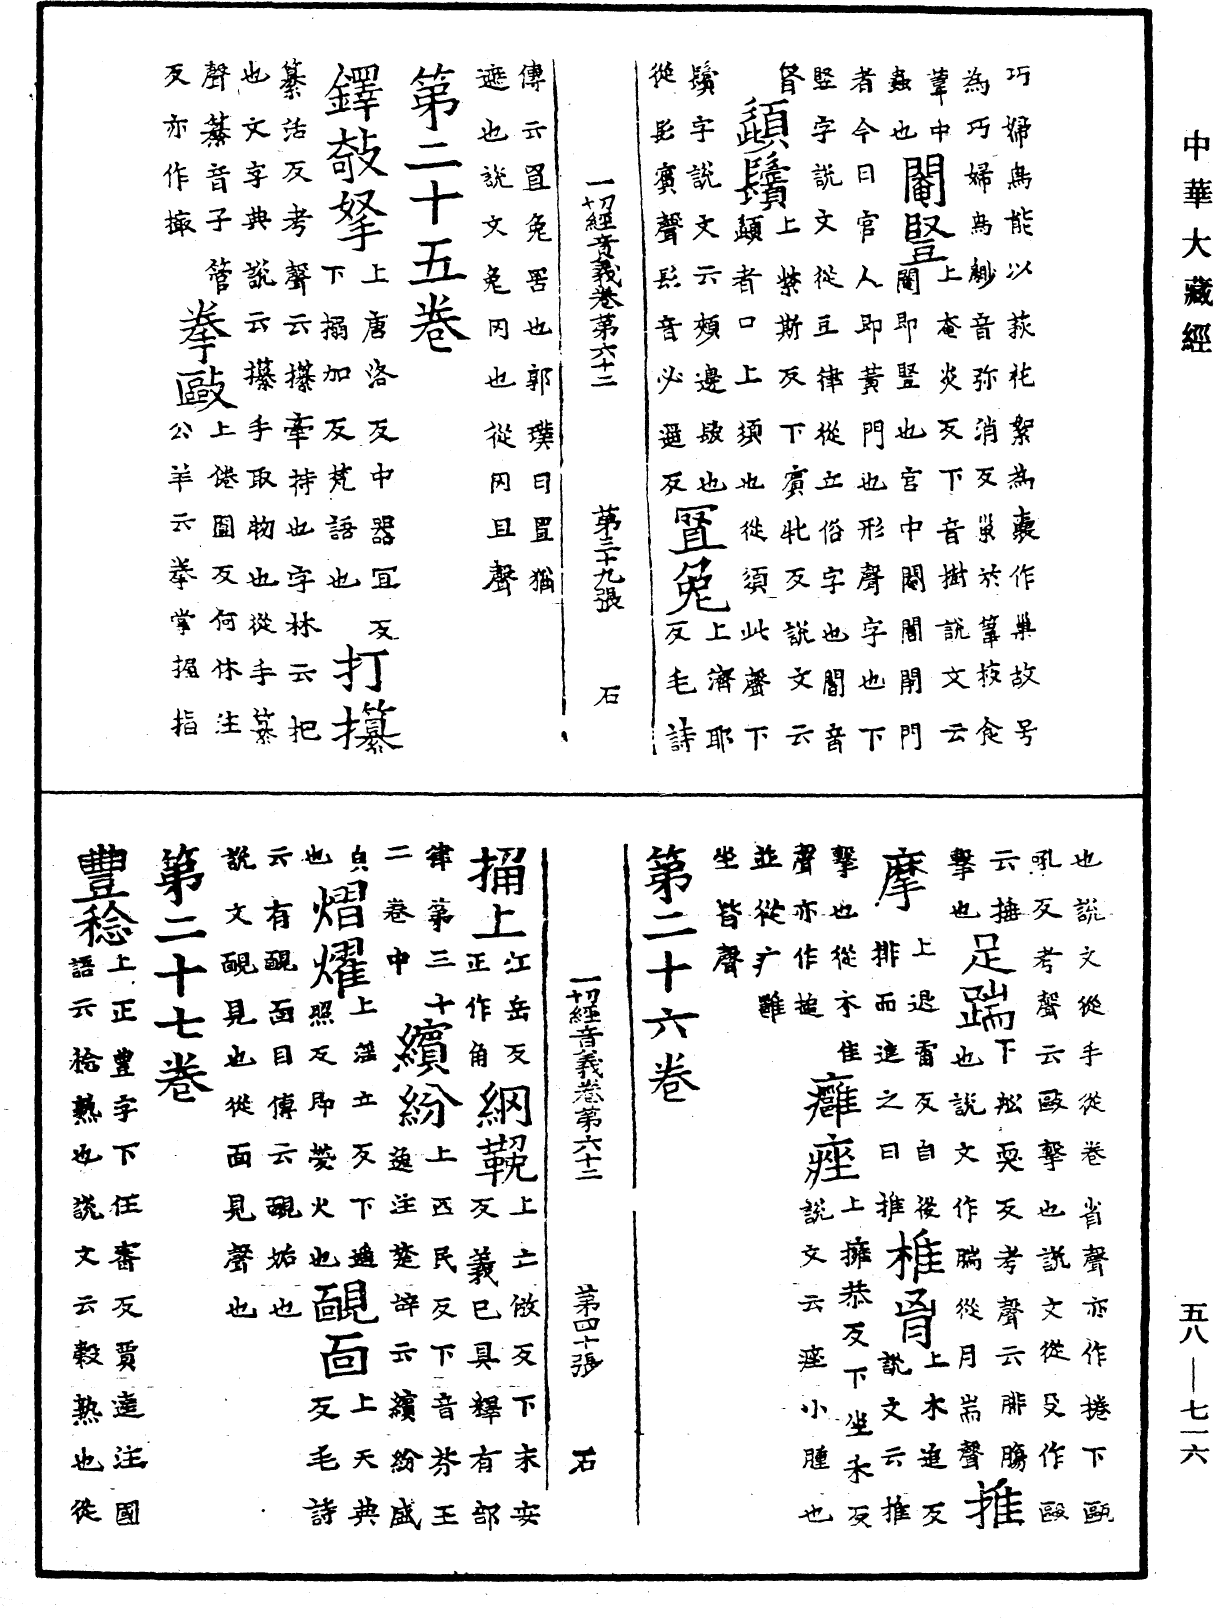 中華大藏經
巧婦鳥能以荻花絮為裹作巢故号
為巧婦鳥鷦音弥消反巢於葦枝食
葦中蟲也
閹豎上奄炎反下音樹說文云
閹即豎也宮中閹閽閉門
者今曰官人即黃門也形聲字也下
竪字說文從豆律從立俗字也閽音
昏
䫇鬢上紫斯反下賓牝反說文云
䫇者口上須也從須此聲下
鬢字說文云頰邊髮也
從髟賓聲髟音必遥反
罝兔上濟耶
反毛詩
一切經音義卷第六十二 第三十九張 石
傳云罝兔罟也郭璞曰罝猶
遮也說文兔网也從网且聲
第二十五卷
鐸敧拏上唐洛反中器冝反
下搦加反梵語也
打攥
纂活反考聲云攥牽持也字林云把
也文字典說云攥手取物也從手纂
聲纂音子管
反亦作撮
拳毆上倦圓反何休注
公羊云拳掌握指
也說文從手從卷省聲亦作捲下甌
吼反考聲云毆擊也說文從殳作毆
云捶擊也
足踹下船耎反考聲云腓膓
也說文作腨從月耑聲
推
摩上退雷反自後
排而進之曰推
椎胷上木追反
說文云椎
擊也從木隹
聲亦作搥
癰痤上擁恭反下坐禾反
說文云痤小腫也
並從疒雝
坐皆聲
第二十六卷
一切經音義卷第六十二 第四十張 石
捔上江岳反
正作角
網鞔上亡倣反下末安
反義已具釋有部
律第三十
二卷中
繽紛上匹民反下音芬王
逸注楚辝云繽紛盛
皃也
熠燿上滛立反下遥
照反即螢火也
靦面上天典
反毛詩
云有靦面目傳云靦姡也
說文靦見也從面見聲也
第二十七卷
豐稔上正豐字下任審反賈逵注國
語云稔熟也說文云穀熟也從
五八—七一六